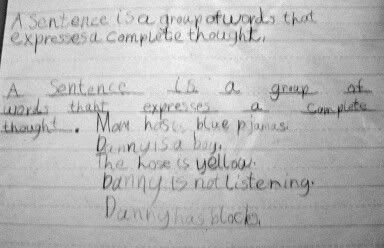 A Sentence is a group of words that
expresses a complete thought.
A Sentence is a group of
words thaht expresses a complete
thought. Mom has blue pjamas.
Danny is a boy.
The hose is yellow.
Danny is not listening.
Danny has blocks.